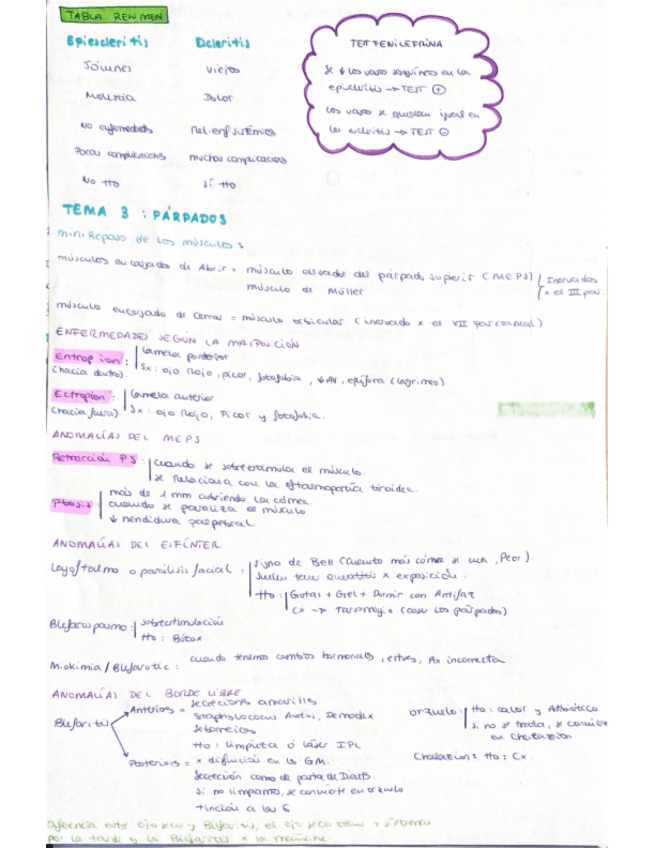 TABLA RESUMEN
Epiescleritis Escleritis
Jóvenes Viejos
Molestia Dolor
No enfermedades Rel. enf sistémicas
Pocas complicaciones muchas complicaciones
No tto Sí tto
TEST FENILEFRINA
Se ↓ los vasos sanguíneos en la
epiescleritis → TEST (+)
Los vasos se quedan igual en
la escleritis → TEST (-)
TEMA 3 : PÁRPADOS
mini Repaso de los músculos :
músculos encargados de Abrir = músculo elevador del párpado superior (MEPS)
músculo de Müller
Inervados
x el III par
músculo encargado de Cerrar = músculo orbicular (inervado x el VII par craneal)
ENFERMEDADES SEGÚN LA MALPOSICIÓN
Entropion : lamela posterior
(hacia dentro). Sx : ojo Rojo, picor, fotofobia, ↓ AV, epífora (lagrimeo)
Ectropion : lamela anterior
(hacia fuera) Sx : ojo Rojo, Picor y fotofobia.
ANOMALÍAS DEL MEPS
Retracción PS : cuando se sobreestimula el músculo.
se Relaciona con la oftalmopatía tiroidea.
Ptosis más de 1 mm cubriendo la córnea.
cuando se paraliza el músculo
↓ hendidura palpebral
ANOMALÍAS DEL ESFÍNTER
Lagoftalmo o parálisis facial : signo de Bell (Cuanto más córnea se vea, Peor).
Suelen tener queratitis x exposición.
tto : Gotas + Gel + Dormir con Antifaz
Cx → Tarsorrafia (coser los párpados)
Blefaroespasmo : sobreestimulación
tto : Bótox
Miokimia / Blefarotic : cuando tenemos cambios hormonales, estrés, Rx incorrecta
ANOMALÍAS DEL BORDE LIBRE
Blefaritis Anterior = secreciones amarillas
Staphylococus Aureus, Demodex
seborreicas
tto : limpieza ó láser IPL
Posteriores = x disfunción en las GM.
secreción como de pasta de Dients
si no limpiamos, se convierte en orzuelo
orzuelo : tto : calor y Antibiótico
si no se trata, se convierte
en Chalazion
Chalazion : tto : Cx.
Diferencia entre ojo seco y Blefaritis, el ojo seco tiene + síntomas
por la tarde y la Blefaritis x la mañana.